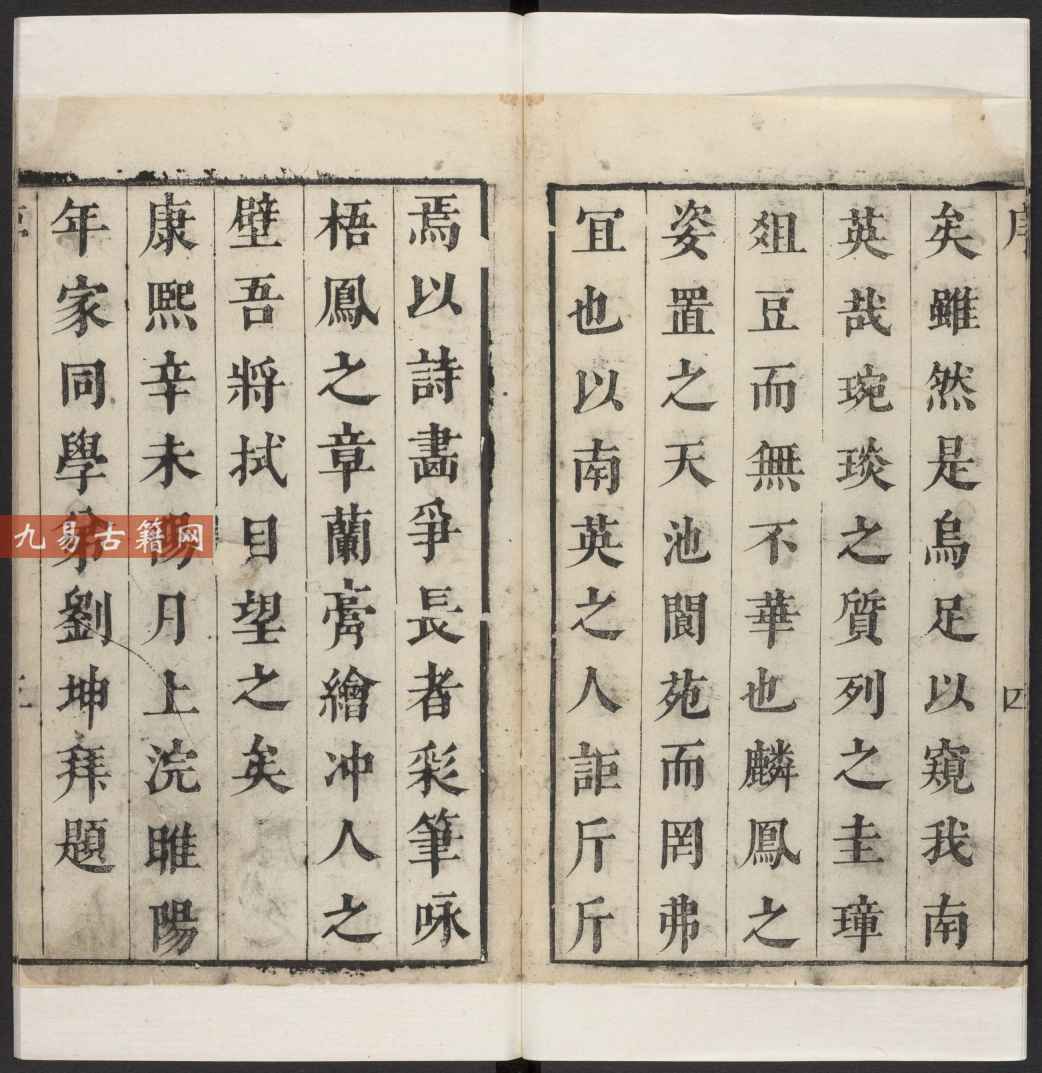 序 四
矣雖然是烏足以窺我南
英哉琬琰之質列之圭璋
爼豆而無不華也麟鳳之
姿置之天池閬苑而罔弗
冝也以南英之人詎斤斤
焉以詩畵爭長者彩筆咏
梧鳳之章蘭膏繪冲人之
壁吾將拭目望之矣
康熙辛未陽月上浣睢陽
年家同學弟劉坤拜題
九易古籍网